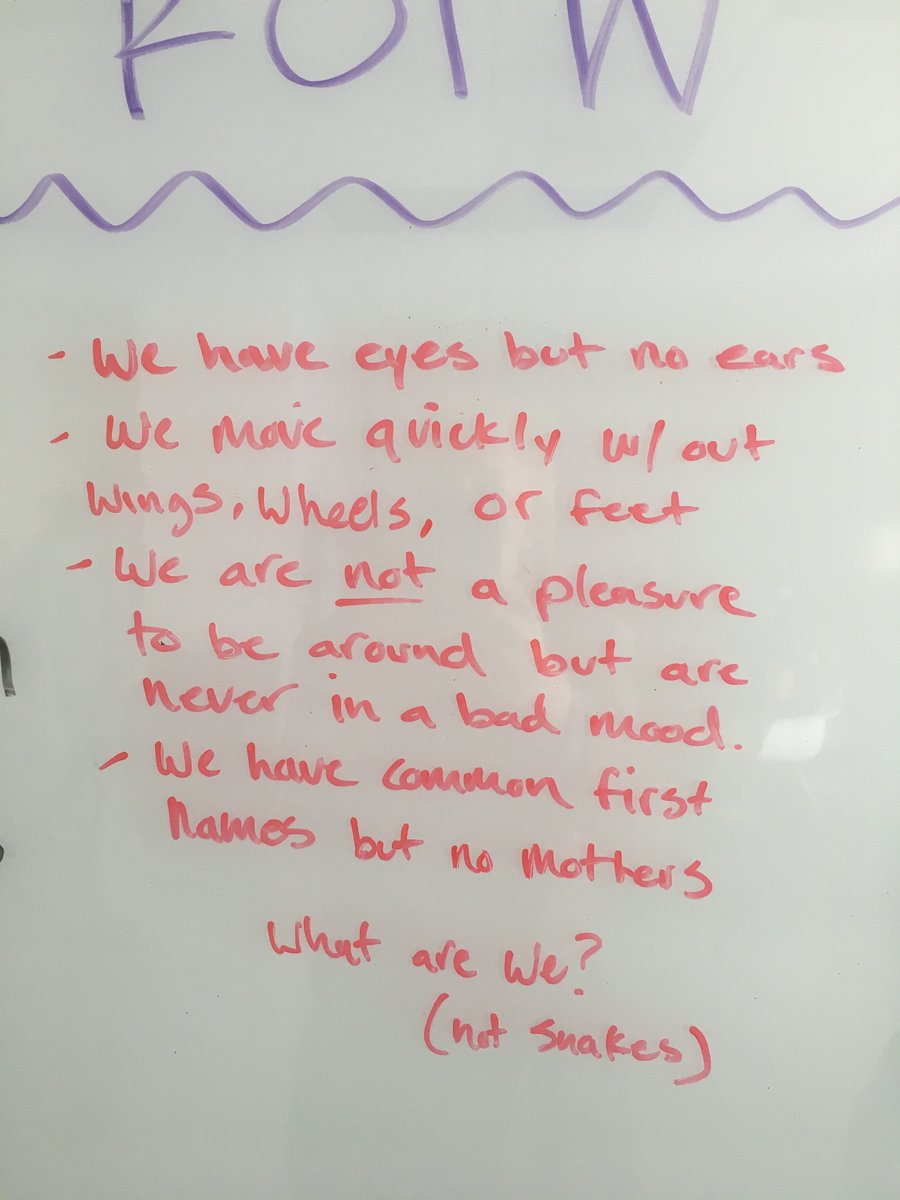 - We have eyes but no ears
- We move quickly w/out
wings, wheels, or feet
- We are not a pleasure
to be around but are
never in a bad mood.
- We have common first
names but no mothers
What are we?
(not snakes)